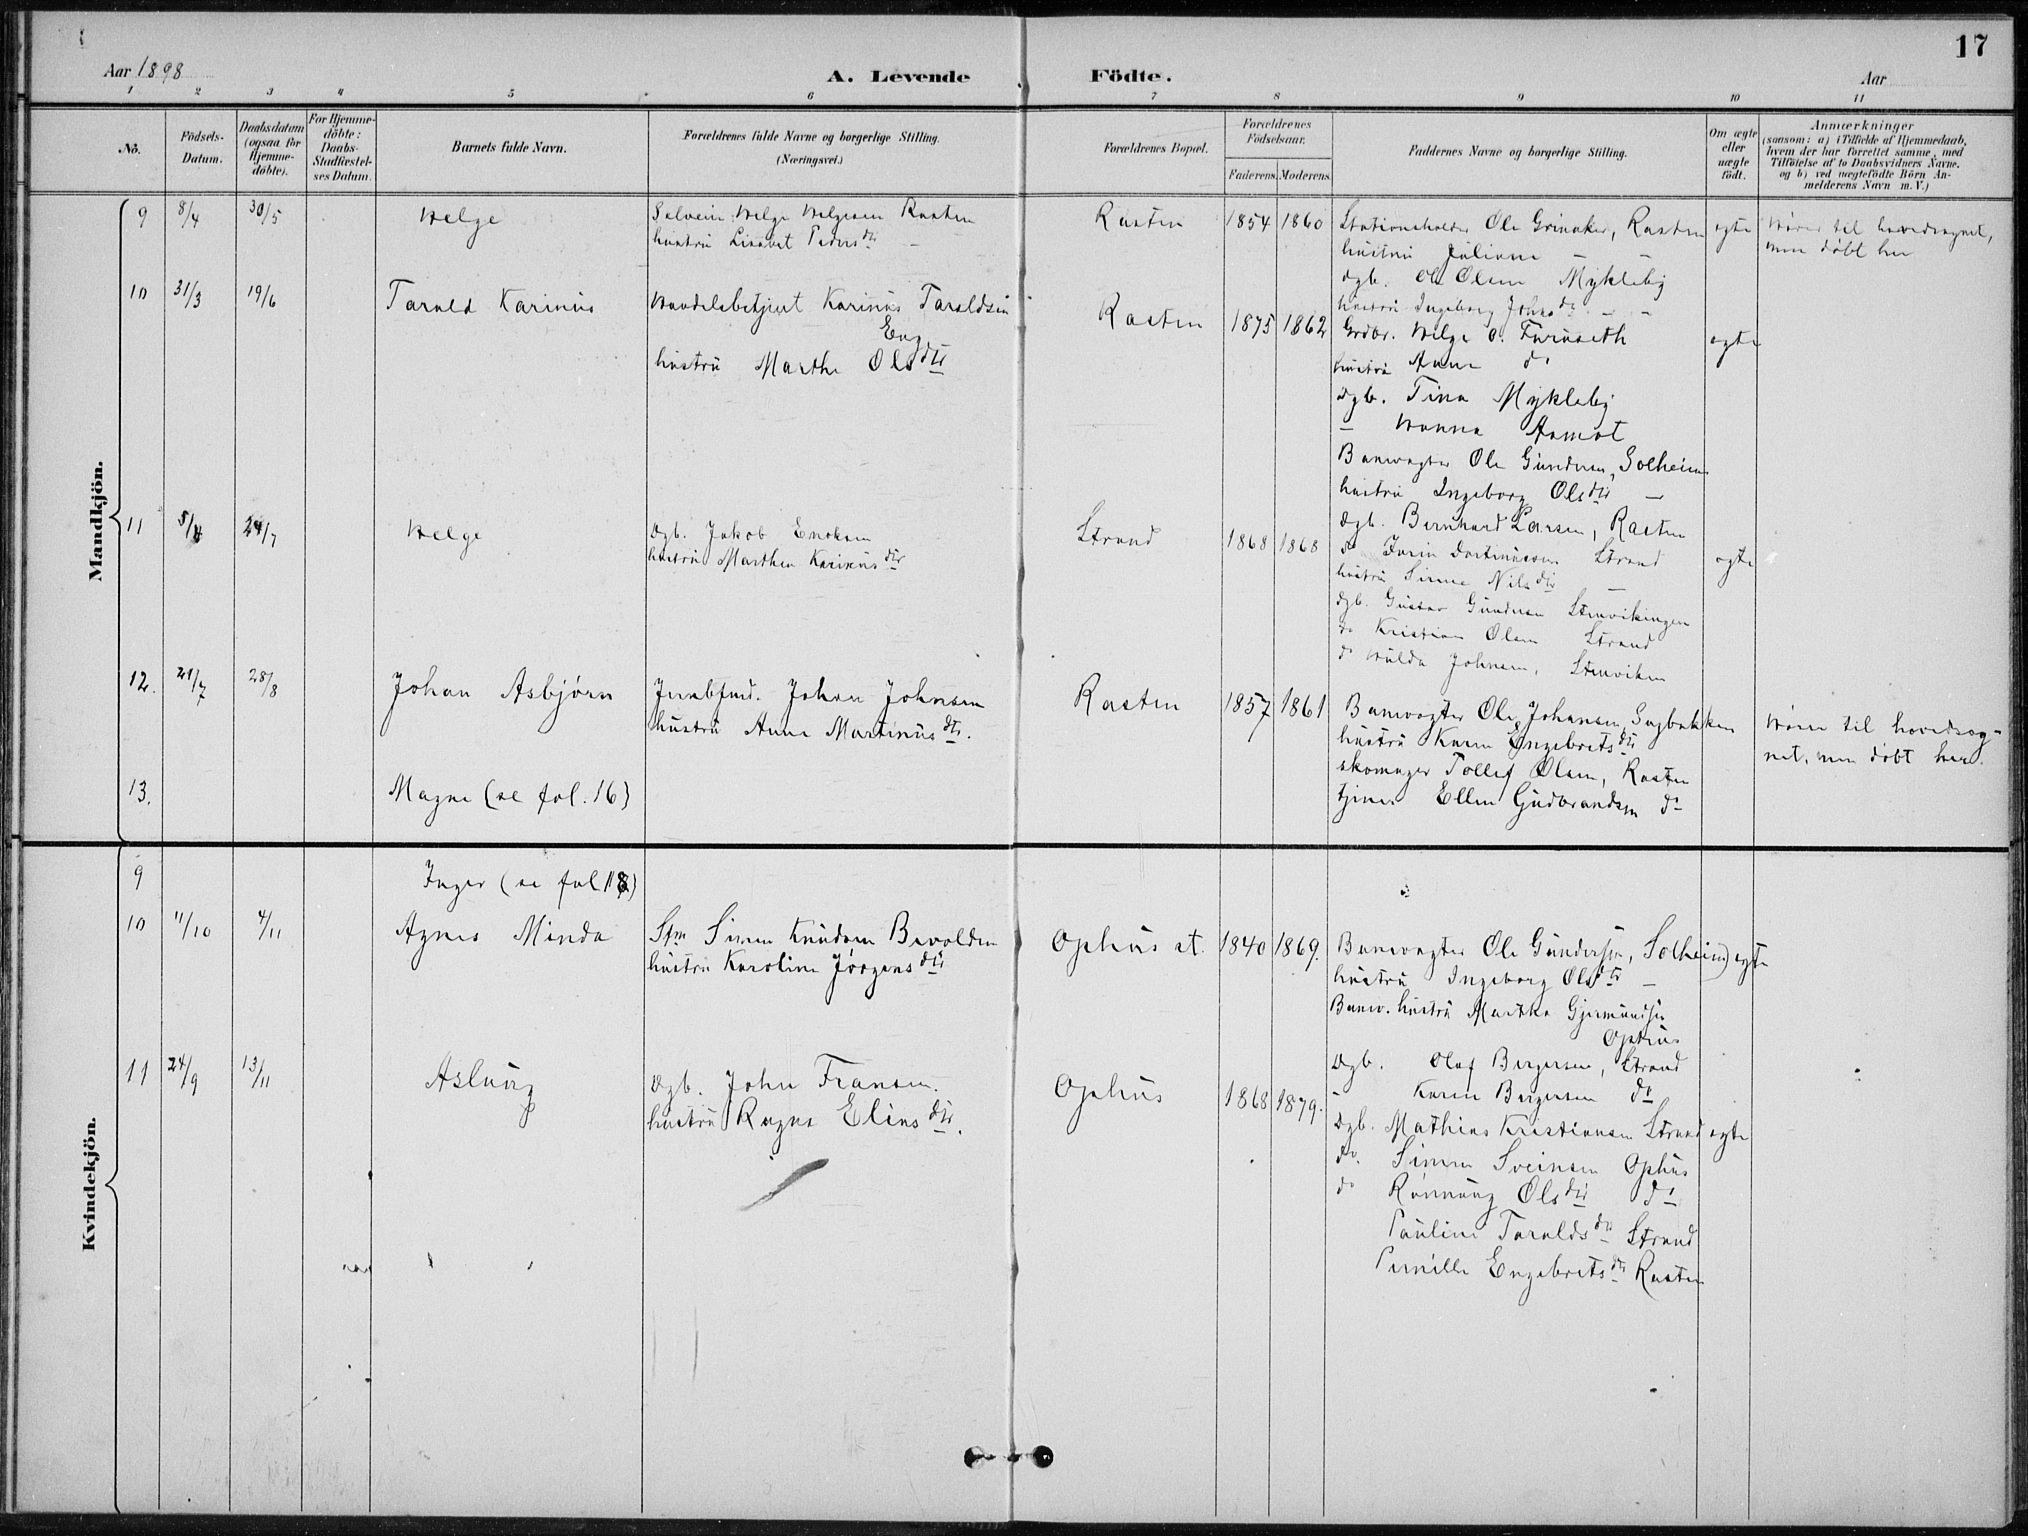 17
Aar 1898
A. Levende Födte.
Aar
1 2 3 4 5 6 7 8 9 10 11
No.
Födsels-Datum.
Daabsdatum (ogsaa for Hjemmedöbte).
For Hjemmedöbte: Daabs-Stadfæstelses Datum.
Barnets fulde Navn.
Forældrenes fulde Navne og borgerlige Stilling. (Næringsvei.)
Forældrenes Bopæl.
Forældrenes Födselsaar.
Faderens. Moderens.
Faddernes Navne og borgerlige Stilling.
Om ægte eller uægte födt.
Anmærkninger
(saasom: a) i Tilfælde af Hjemmedaab, hvem der har forrettet samme, med Tilföielse af to Daabsvidners Navne. og b) ved uægtefödte Börn Anmelderens Navn m. V.)
Mandkjön.
9 8/4 30/5 Helge
Selveier Helge Helgesen Rasten
hustru Lisabet Peders dtr -
Rasten 1854 1860
Stationsholder Ole Grinaker, Rasten
hustru Juliane - -
dgb. Ole Olsen Mykleby
hustru Ingeborg Johns dtr - -
egte
Hörer til hovedsognet,
men döbt her
10 31/3 19/6 Tarald Karinus
Handelsbetjent Karinus Taraldsen
Eng
hustru Marthe Ols dtr
Rasten 1875 1862
Grdbr. Helge O. Furuseth
hustru Anne do
dgb. Tina Mykleby
- Hanna Aamot
egte
11 5/4 24/7 Helge
dgb. Jakob Eriksen
hustru Marthea Karinus dtr
Strand 1868 1868
Banevogter Ole Gundersen, Solheim
hustru Ingeborg Ols dtr -
dgb. Bernhard Larsen, Rasten
do Strand
hustru Sinne Nils dtr -
dgb. Gustav Gundersen Stenvikengen
do Kristian Olsen Strand
do Hulda Johnsen, Stenviken
egte
12. 21/7 28/8 Johan Asbjörn
Jernbfmd. Johan Johnsen
hustru Anne Martinus dtr.
Rasten 1857 1861
Banevogter Ole Johansen, Sagbakken
hustru Karen Engebrets dtr
skomager Tollef Olsen, Rasten
tjener Ellen Gudbrandsen do
Hörer til hovedsog-
net, men döbt her.
13. Magne (se fol. 16)
Kvindekjön.
9 Inger (se fol 18)
10 11/10 4/11 Agnes Minda
Stm Simen Knudsen Bevolden
hustru Karoline Jörgens dtr
Ophus st. 1840 1869.
Banevogter Ole Gundersen, Solheim
hustru Ingeborg Ols dtr -
Banev. hustru Marthea Gjermundsen
Ophus
dgb. Olaf Bergersen, Strand
- Karen Bergersen do
egte
11 24/9 13/11 Aslaug
dgb. John Fransen.
hustru Ragna Elias dtr.
Ophus 1868 1879.
Dgb. Mathias Kristiansen Strand
do. Simen Sveinsen Ophus
do Rönnaug Ols dtr do
Pauline Taralds dtr Strand
Pernille Engebrets dtr Rasten
egte